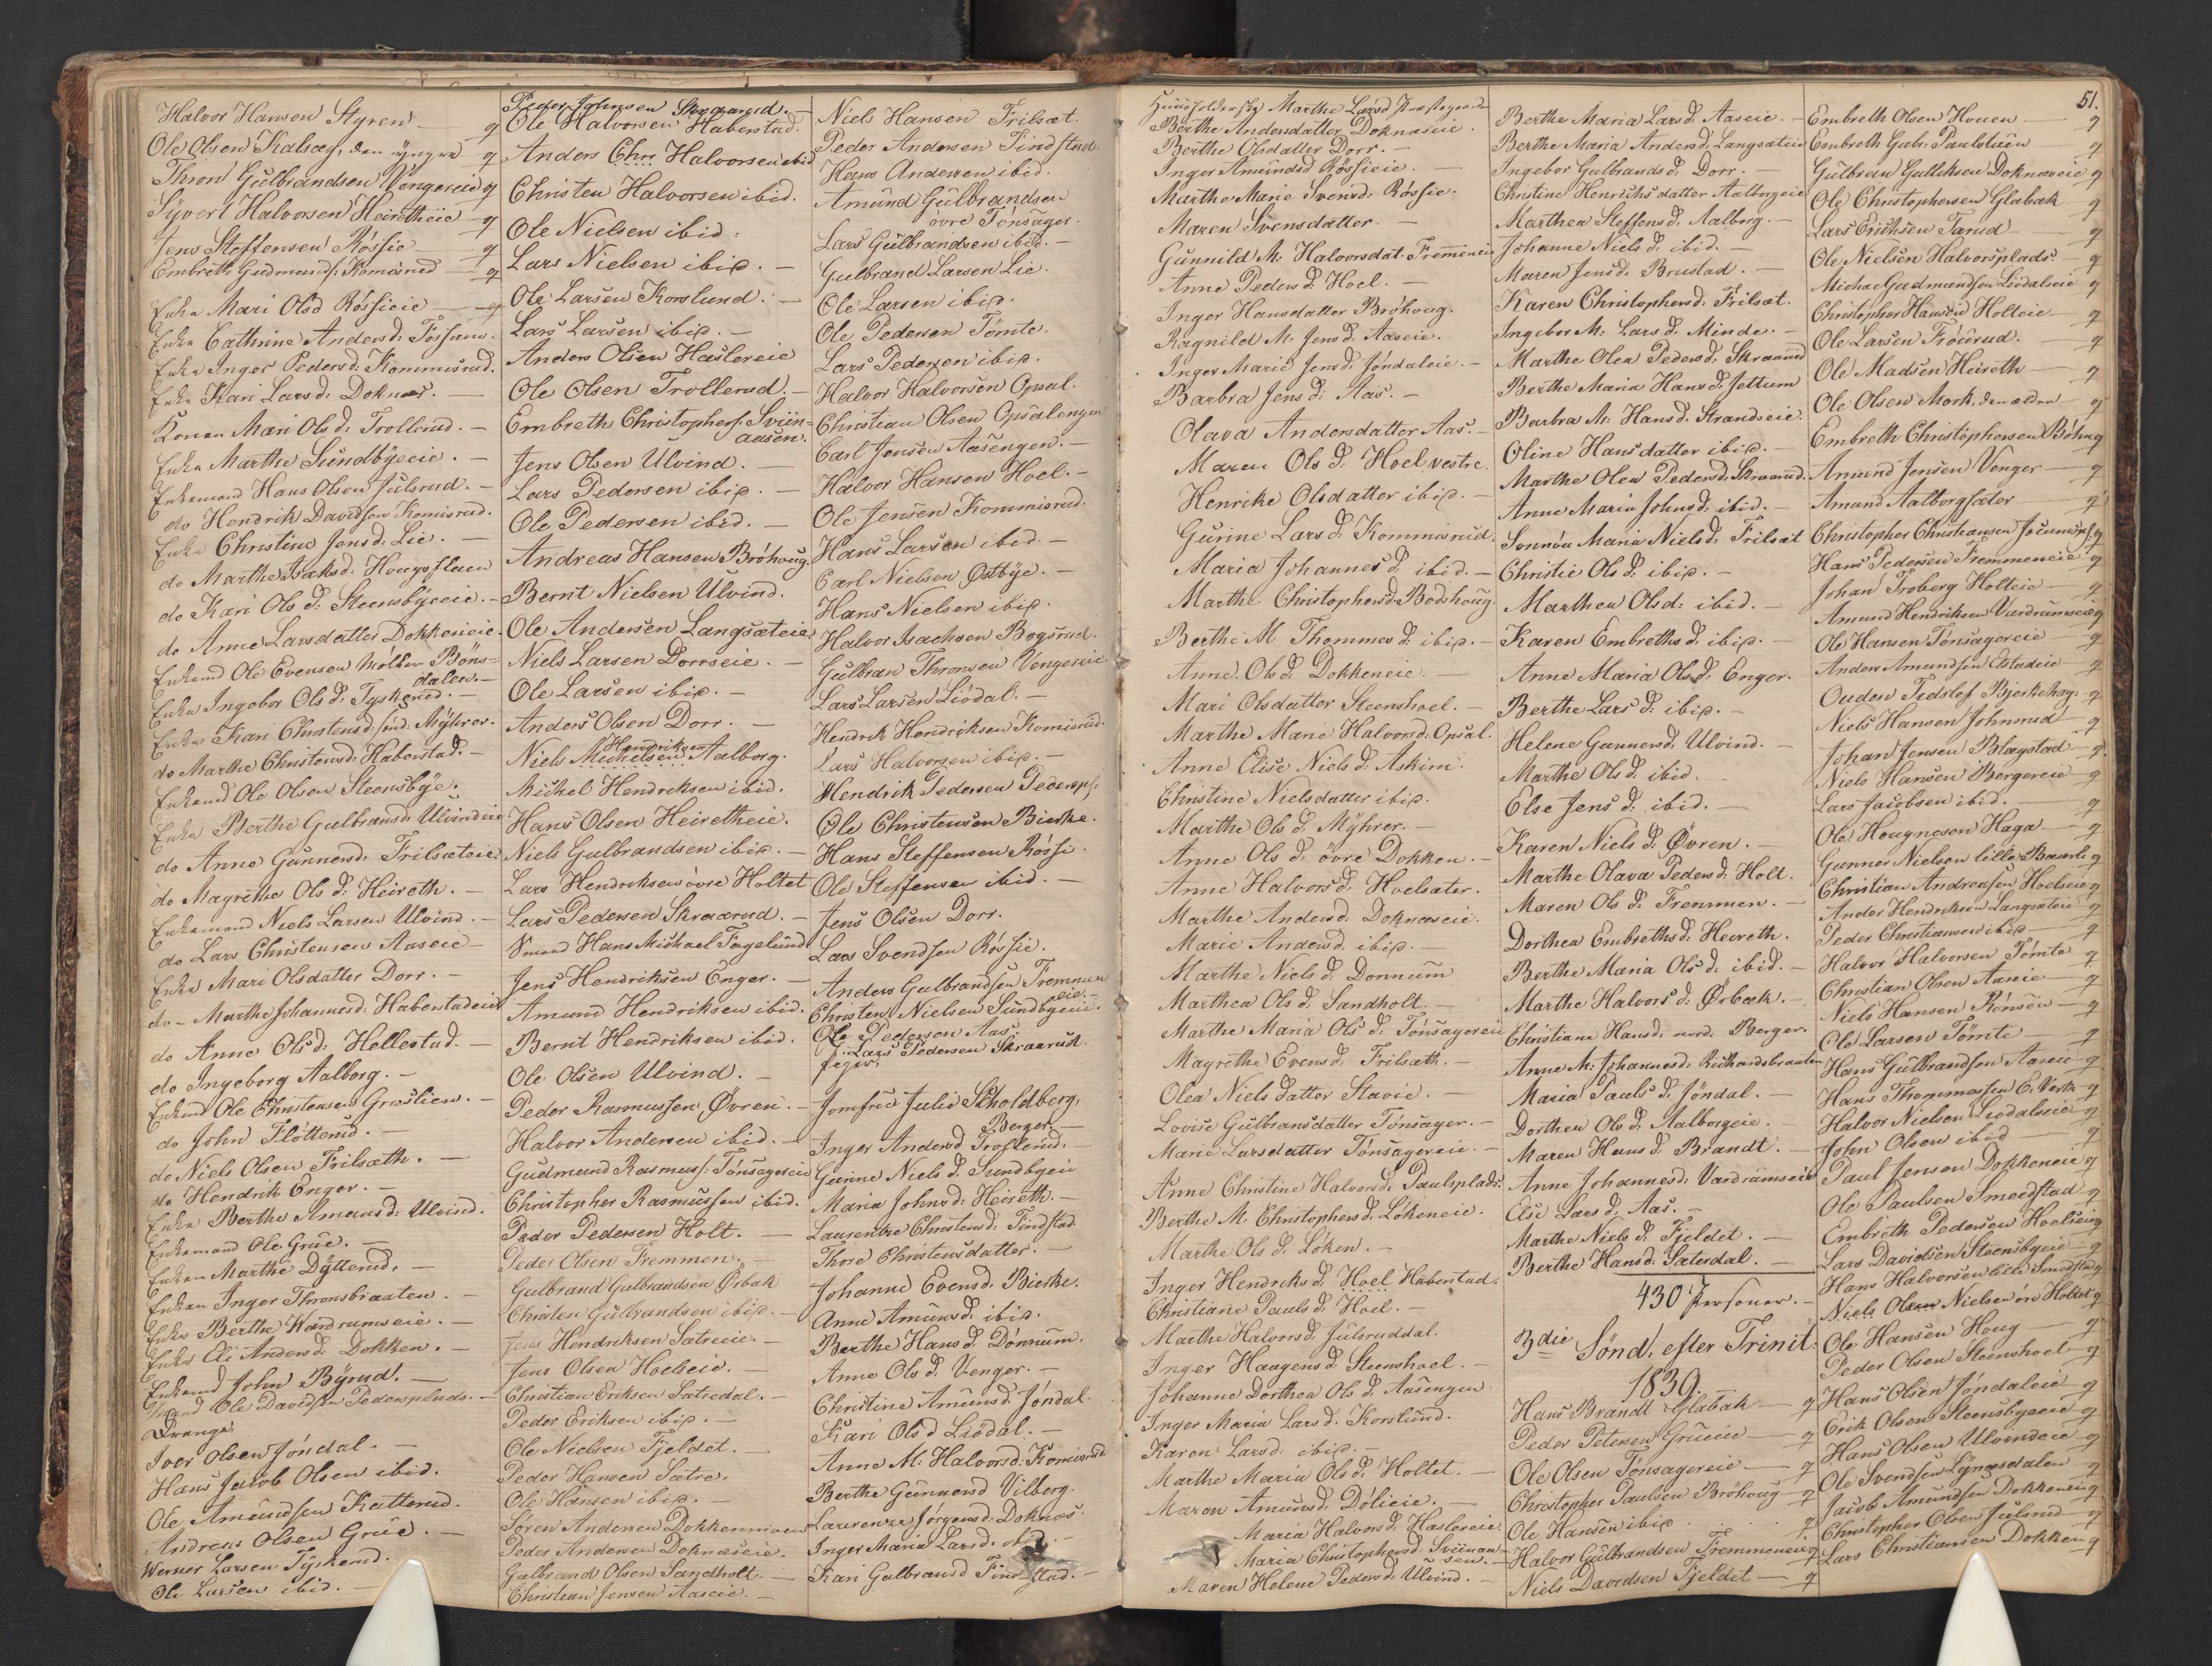 Halvor Hansen Styren — q
Ole Olsen Kalseg, den yngre q
Thron Gulbrandsen Vengereie q
Syvert Halvorsen Heiretheie — q
Jens Steffensen Røssie — q
Embreth Gudmunds. Komisrud — q
Enke Mari Olsd Røssieie — q
Enke Cathrine Andersd: Fossum.
Enke Inger Pedersd: Kommisrud.
Enke Kari Larsd: Doknæs. —
Konen Mari Olsd: Trollerud. —
Enke Marthe Sundbyeeie. —
Enkemand Hans Olsen Julsrud. —
do Hendrik Davidsen Komisrud.
Enke Christine Jensd: Lie. —
do Marthe Isaksd: Hougsfloen
do Kari Ols d: Steensbyeeie. —
do Anne Larsdatter Dokkeneie.
Enkemd Ole Evensen Møller Bøns=
dalen. —
Enke Ingebor Ols d: Tyskerud. —
Enke Kari Christensd: Mÿhrer.
do Marthe Christensd: Haberstad. —
Enkemd Ole Olsen Steensbÿe.
Enke Berthe Gulbransd: Ulvindeie
do Anne Gunnersd: Frilsæteie.
do Magrethe Ols d: Heireth. —
Enkemand Niels Larsen Ulvind. —
do Lars Christensen Aaseie —
Enke Mari Olsdatter Dorr. —
do — Marthe Johannesd: Haberstadeie
do Anne Ols d: Hellestad. —
do Ingeborg Aalborg. —
Enkemd Ole Christensen Græslien. —
do John Fløtterud. —
do Niels Olsen Frilsæth. —
do Hendrik Enger. —
Enke Berthe Amunds d: Ulvind.
Enkemand Ole Grue. —
Enken Marthe Dÿtterud. —
Enken Inger Thronsbraaten. —
Enke Berthe Wardrumseie. —
Enke Eli Anders d: Dokken. —
Enkemd John Bÿrud. —
Ole Davidsen Pedersplads. —
Drenge:
Iver Olsen Jøndal. —
Hans Jacob Olsen ibid.
Ole Amundsen Katterud.
Andreas Olsen Grue. —
Werner Larsen Tyskerud.
Ole Larsen ibid. —
Peder Johnsen Skraarud. —
Ole Halvorsen Haberstad.
Anders Chr. Halvorsen ibid
Christen Halvorsen ibid.
Ole Nielsen ibid.
Lars Nielsen ibid. —
Ole Larsen Korslund. —
Lars Larsen ibid. —
Anders Olsen Haslereie
Ole Olsen Trollerud. —
Embreth Christophers. Sviin=
aasen.
Jens Olsen Ulvind. —
Lars Pedersen ibid. —
Ole Pedersen ibid. —
Andreas Hansen Brøhoug.
Bernt Nielsen Ulvind.
Ole Andersen Langsæteie
Niels Larsen Dorrseie. —
Ole Larsen ibid. —
Anders Olsen Dorr. —
Hendriksen
Niels Michelsen Aalborg.
Mickel Hendriksen ibid.
Hans Olsen Heiretheie.
Niels Gulbrandsen ibid. —
Lars Hendriksen øvre Holtet
Lars Pedersen Skraarud. —
Hans Michael Fagelund
Jens Hendriksen Enger. —
Amund Hendriksen ibid.
Bernt Hendriksen ibid.
Ole Olsen Ulvind. —
Peder Rasmussen Øvren. —
Halvor Andersen ibid. —
Gudmund Rasmuss: Tønsagereie
Christopher Rasmussen ibid.
Peder Pedersen Holt. —
Peder Olsen Fremmen. —
Gulbrand Gulbrandsen Ørbak
Christen Gulbrandsen ibid. —
Jens Hendriksen Satreeie. —
Jens Olsen Hoelseie. —
Christian Eriksen Satredal. —
Peder Eriksen ibid. —
Ole Nielsen Fjeldet. —
Peder Hansen Satre.
Ole Hansen ibid. —
Søren Andersen Dokkenmoen
Peder Andersen Doknæseie.
Gulbrand Olsen Sandholt. —
Christian Jensen Aaseie. —
Niels Hansen Frilsæt.
Peder Andersen Findstad.
Hans Andersen ibid.
Amund Gulbrandsen
øvre Tønsager.
Lars Gulbrandsen ibid. —
Gulbrand Larsen Lie.
Ole Larsen ibid.
Ole Pedersen Tømte.
Lars Pedersen ibid.
Halvor Halvorsen Opsal.
Christian Olsen Opsalengen
Carl Jensen Aasengen. —
Halvor Hansen Hoel. —
Ole Jensen Kommisrud.
Hans Larsen ibid. —
Carl Nielsen Østbÿe. —
Hans Nielsen ibid.
Halvor Isachsen Bogsrud.
Gulbran Thronsen Vengereie
Lars Larsen Liødal. —
Hendrik Hendriksen Komisrud.
Lars Halvorsen ibid. —
Hendrik Pedersen Pedersps.
Ole Christensen Bierke.
Hans Steffensen Røssi.
Ole Steffensen ibid. —
Jens Olsen Dorr.
Lars Svendsen Røssie.
Anders Gulbrandsen Fremmen
eie.
Christen Nielsen Sundbyeeie.
Ole Pedersen Aas.
Lars Pedersen Skraarud.
Piger.
Jomfrue Julie Scholdberg,
Berger. —
Inger Andersd Troglerud. —
Gurine Niels d: Sundbyeie
Maria Johnsd: Heireth. —
Laurentze Christensd: Findstad
Thore Christensdatter. —
Johanne Evensd. Bierke.
Anne Amunsd: ibid.
Berthe Hansd: Dønnum.
Anne Ols d: Venger. —
Christine Amunsd. Jøndal.
Kari Olsd Liødal. —
Anne M: Halvorsd: Komisrud
Berthe Gunnersd Vilberg.
Laurenze Jørgensd: Doknæs.
Inger Maria Larsd. ibid. —
Kari Gulbransd Findstad. —
51.
Huusholderske Marthe Larsd Præstegaarden
Berthe Andersdatter Doknæseie.
Berthe Olsdatter Dorr. —
Inger Amundsd Røssieie. —
Marthe Marie Svensd: Røssie.
Maren Svensdatter. —
Gunnild M: Halvorsdat. Fremmeneie
Anne Peders d: Hoel. —
Inger Hansdatter Brøhoug.
Ragnild M. Jensd. Aaseie.
Inger Marie Jensd. Jøndaleie. —
Barbra Jens d: Aas. —
Olava Andersdatter Aas. —
Maren Ols d: Hoel vestre.
Henrike Olsdatter ibid. —
Gurine Lars d: Kommisrud.
Maria Johannes d: ibid. —
Marthe Christophersd: Bodshoug.
Berthe M. Thommes d: ibid. —
Anne Ols d: Dokkeneie. —
Mari Olsdatter Steenshoel. —
Marthe Marie Halvorsd. Opsal.
Anne Elise Niels d: Askim.
Christine Nielsdatter ibid.
Marthe Ols d: Mÿhrer. —
Anne Ols d: øvre Dokken. —
Anne Halvors d: Hoelsæter.
Marthe Andersd: Doknæseie.
Marie Andersd. ibid. —
Marthe Niels d: Donnum
Marthea Ols d: Sandholt. —
Marthe Maria Ols d: Tønsagereie
Magrethe Evensd: Frilsæth. —
Olea Nielsdatter Stavie. —
Lovise Gulbransdatter Tønsager. —
Marie Larsdatter Tønsagereie. —
Anne Christine Halvorsd: Paulsplads.
Berthe M. Christophersd. Løkeneie.
Marthe Ols d: Løken. —
Inger Hendriks d: Hoel Haberstad.
Christiane Pauls d: Hoel. —
Marthe Halvors d: Julsruddal.
Inger Haagens d: Steenshoel. —
Johanne Dorthea Ols d: Aasengen
Inger Maria Lars d. Korslund.
Karen Larsd: ibid. —
Marthe Maria Ols d: Holtet. —
Maren Amunsd: Dølieie. —
Maria Halvorsd: Haslereie.
Maria Christophersd: Sviinaa=
sen. —
Maren Helene Pedersd: Ulvind. —
Berthe Maria Lars d. Aaseie. —
Berthe Maria Andersd: Langsæteie
Ingebor Gulbrands d: Dorr. —
Christine Henrichsdatter Aalborgeie
Marthea Steffens d: Aalborg. —
Johanne Niels d: ibid. —
Maren Jens d: Brustad. —
Karen Christophersd: Frilsæt.
Ingebor M. Lars d. Minde. —
Marthe Olea Peders d: Skraarud
Berthe Maria Hans d: Jettum
Barbra M. Hans d. Strandseie.
Oline Hansdatter ibid. —
Marthe Olea Pedersd. Skraarud.
Anne Maria Johns d: ibid. —
Sonnøv Maria Niels d: Frilsæt
Christie Ols d: ibid. —
Marthea Olsd: ibid. —
Karen Embreths d: ibid. —
Anne Maria Ols d: Enger.
Berthe Lars d: ibid. —
Helene Gunnersd: Ulvind. —
Marthe Ols d: ibid. —
Else Jens d: ibid. —
Karen Niels d: Øvren. —
Marthe Olava Peders d: Holt.
Maren Ols d: Fremmen. —
Dorthea Embreths d: Heireth.
Berthe Maria Ols d: ibid. —
Marthe Halvors d: Ørbæk. —
Christiane Hansd: nord. Berger.
Anne M: Johannesd: Richardsbraaten
Maria Pauls d: Jøndal. —
Dorthea Ols d. Aalborgeie. —
Maren Hans d. Brandt. —
Anne Johannesd: Vardrumseie
Else Lars d: Aas. —
Marthe Niels d: Fjeldet. —
Berthe Hansd: Satersdal. —
430 Personer. —
3die Sønd: efter Trinit:
1839.
Hans Brandt Glabak — q
Peder Petersen Grueie — q
Ole Olsen Tønsagereie — q
Christopher Paulsen Brøhoug — q
Ole Hansen ibid — q
Halvor Gulbrandsen Fremmeneie q
Niels Davidsen Fjeldet — q
Embreth Olsen Houen — q
Embreth Gubr. Paulstuen q
Gulbran Gulleksen Doknæseie q
Ole Christophersen Glabak q
Lars Eriksen Tarud — q
Ole Nielsen Halvorsplads — q
Michael Gudmundsen Liødalseie q
Christopher Hansen Holteie — q
Ole Larsen Frøisrud. — q
Ole Madsen Heireth — q
Ole Olsen Mork, den ældre q
Embreth Christophersen Bøhn q
Amund Jensen Venger — q
Amund Aalborgsæter q
Christopher Christiansen q
Hans Pedersen Fremmeneie q
Johan Froberg Holteie — q
Amund Hendriksen Vardrumseie q
Ole Hansen Tønsagereie — q
Anders Amundsen Elstadeie — q
Ouden Tidslef Bjerkehag. q
Niels Hansen Johnsrud — q
Johan Jensen Blegstad — q
Niels Hansen Bergereie — q
Lars Jacobsen ibid. q
Ole Hougnesen Haga — q
Gunner Nielsen lille Baarli q
Christian Andreasen Hoelseie q
Anders Hendriksen Langsæteie q
Peder Christiansen ibid — q
Halvor Halvorsen Tømte q
Christian Olsen Aaseie — q
Niels Hansen Rønsen — q
Ole Larsen Tømte — q
Hans Gulbrandsen Aaseie — q
Hans Thommassen E. Verk — q
Halvor Nielsen Liødalseie q
John Olsen ibid — q
Paul Jensen Dokkeneie q
Ole Paulsen Smedstad q
Embreth Pedersen Hoelseie q
Lars Davidsen Steensbyeeie — q
Hans Halvorsen lille Smedstad q
Niels Olsen Nielsen øvre Holtet q
Ole Hansen Houg — q
Peder Olsen Steenshoel — q
Hans Olsen Jøndaleie — q
Erik Olsen Steensbyeeie — q
Hans Olsen Ulvindeie — q
Ole Svendsen Lÿnæsdalen q
Jacob Amundsen Dokkeneie q
Christopher Olsen Julsrud — q
Lars Christiansen Dokken q